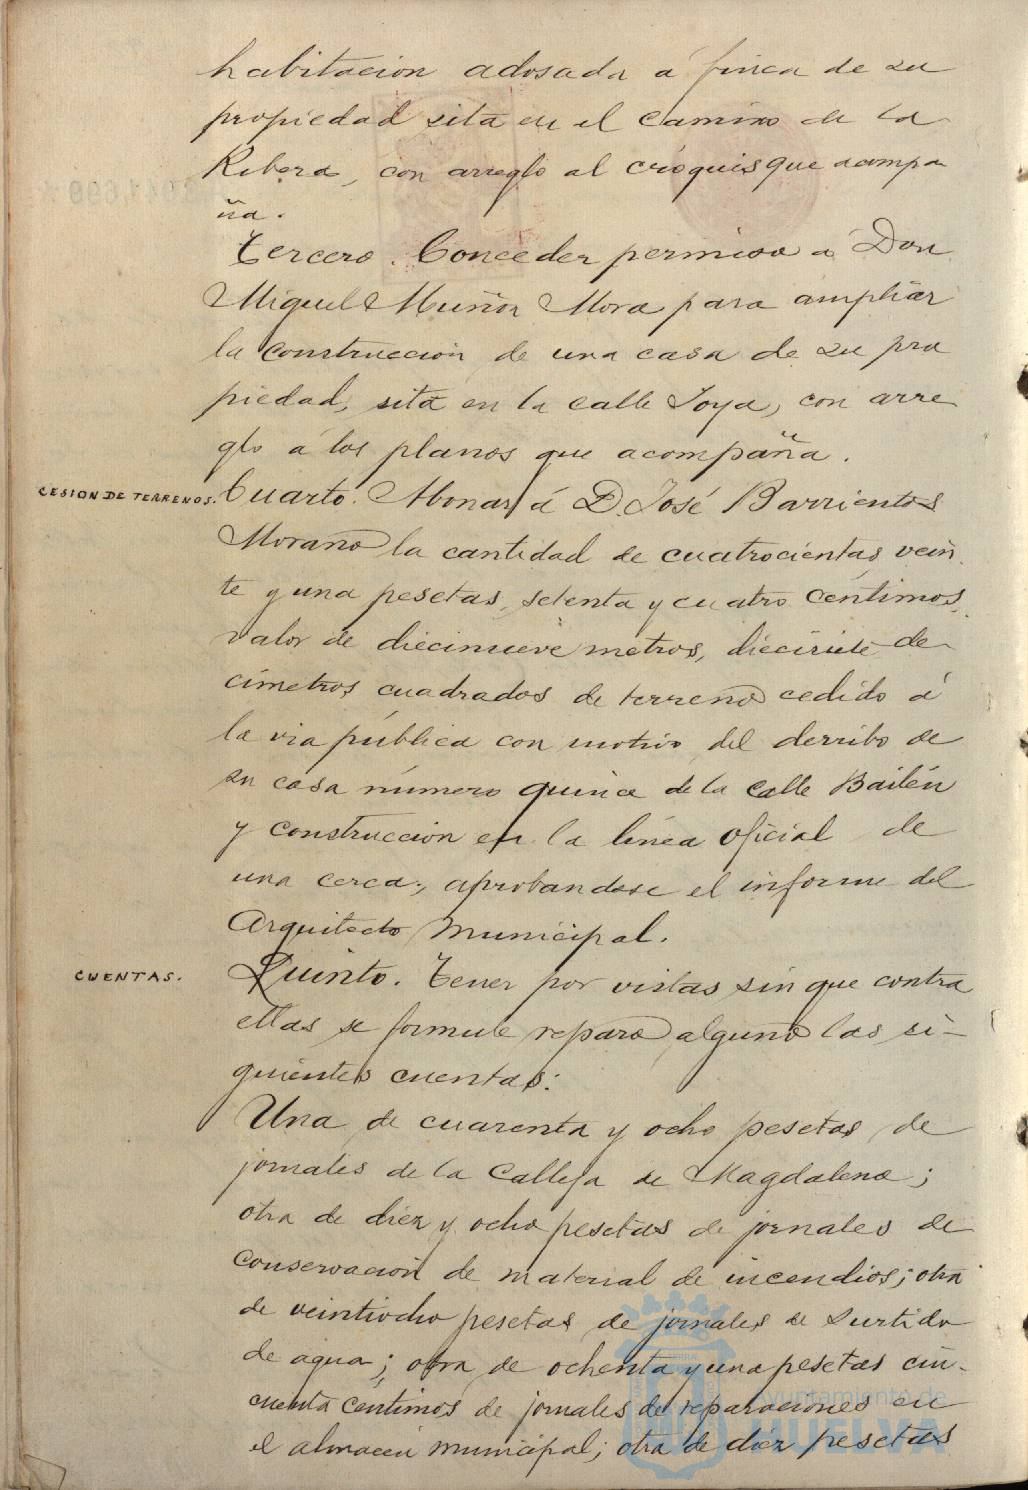 habitacion adosada á finca de su
propiedad sita en el camino de la
Ribera, con arreglo al cróquis que acompa
ña.
Tercero. Conceder permiso á Don
Miguel Muñoz Mora para ampliar
la construccion de una casa de su pro
piedad, sita en la calle Joya, con arre
glo á los planos que acompaña.
CESION DE TERRENOS. Cuarto. Abonar á D. José Barrientos
Morano la cantidad de cuatrocientas vein
te y una pesetas, setenta y cuatro céntimos,
valor de diecinueve metros, diecisiete de
címetros cuadrados de terreno cedido á
la via pública con motivo del derribo de
su casa número quince de la calle Bailén
y construccion en la línea oficial de
una cerca; aprobandose el informe del
Arquitecto Municipal.
CUENTAS. Quinto. Tener por vistas sin que contra
ellas se formule reparo alguno las si-
guientes cuentas:
Una de cuarenta y ocho pesetas de
jornales de la Calleja de Magdalena;
otra de diez y ocho pesetas de jornales de
conservacion de material de incendios; otra
de veintiocho pesetas de jornales de surtido
de agua; otra de ochenta y una pesetas cin-
cuenta céntimos de jornales de reparaciones en
el almacen municipal; otra de diez pesetas
Ayuntamiento de
HUELVA